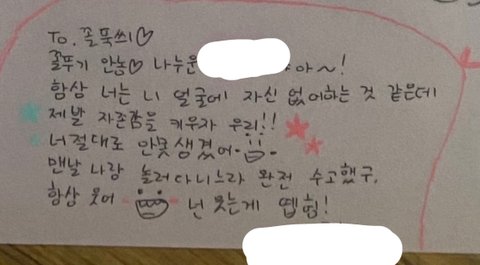 To. 꼴뚝씨♡
꼴뚜기 안농♡ 나누운 야~!
항상 너는 니 얼굴에 자신 없어하는 것 같은데
제발 자존감을 키우자 우리!!
너 절대로 안못생겼어.
맨날 나랑 놀러다니느라 완전 수고했구,
항상 웃어 넌 웃는게 뗍힘!